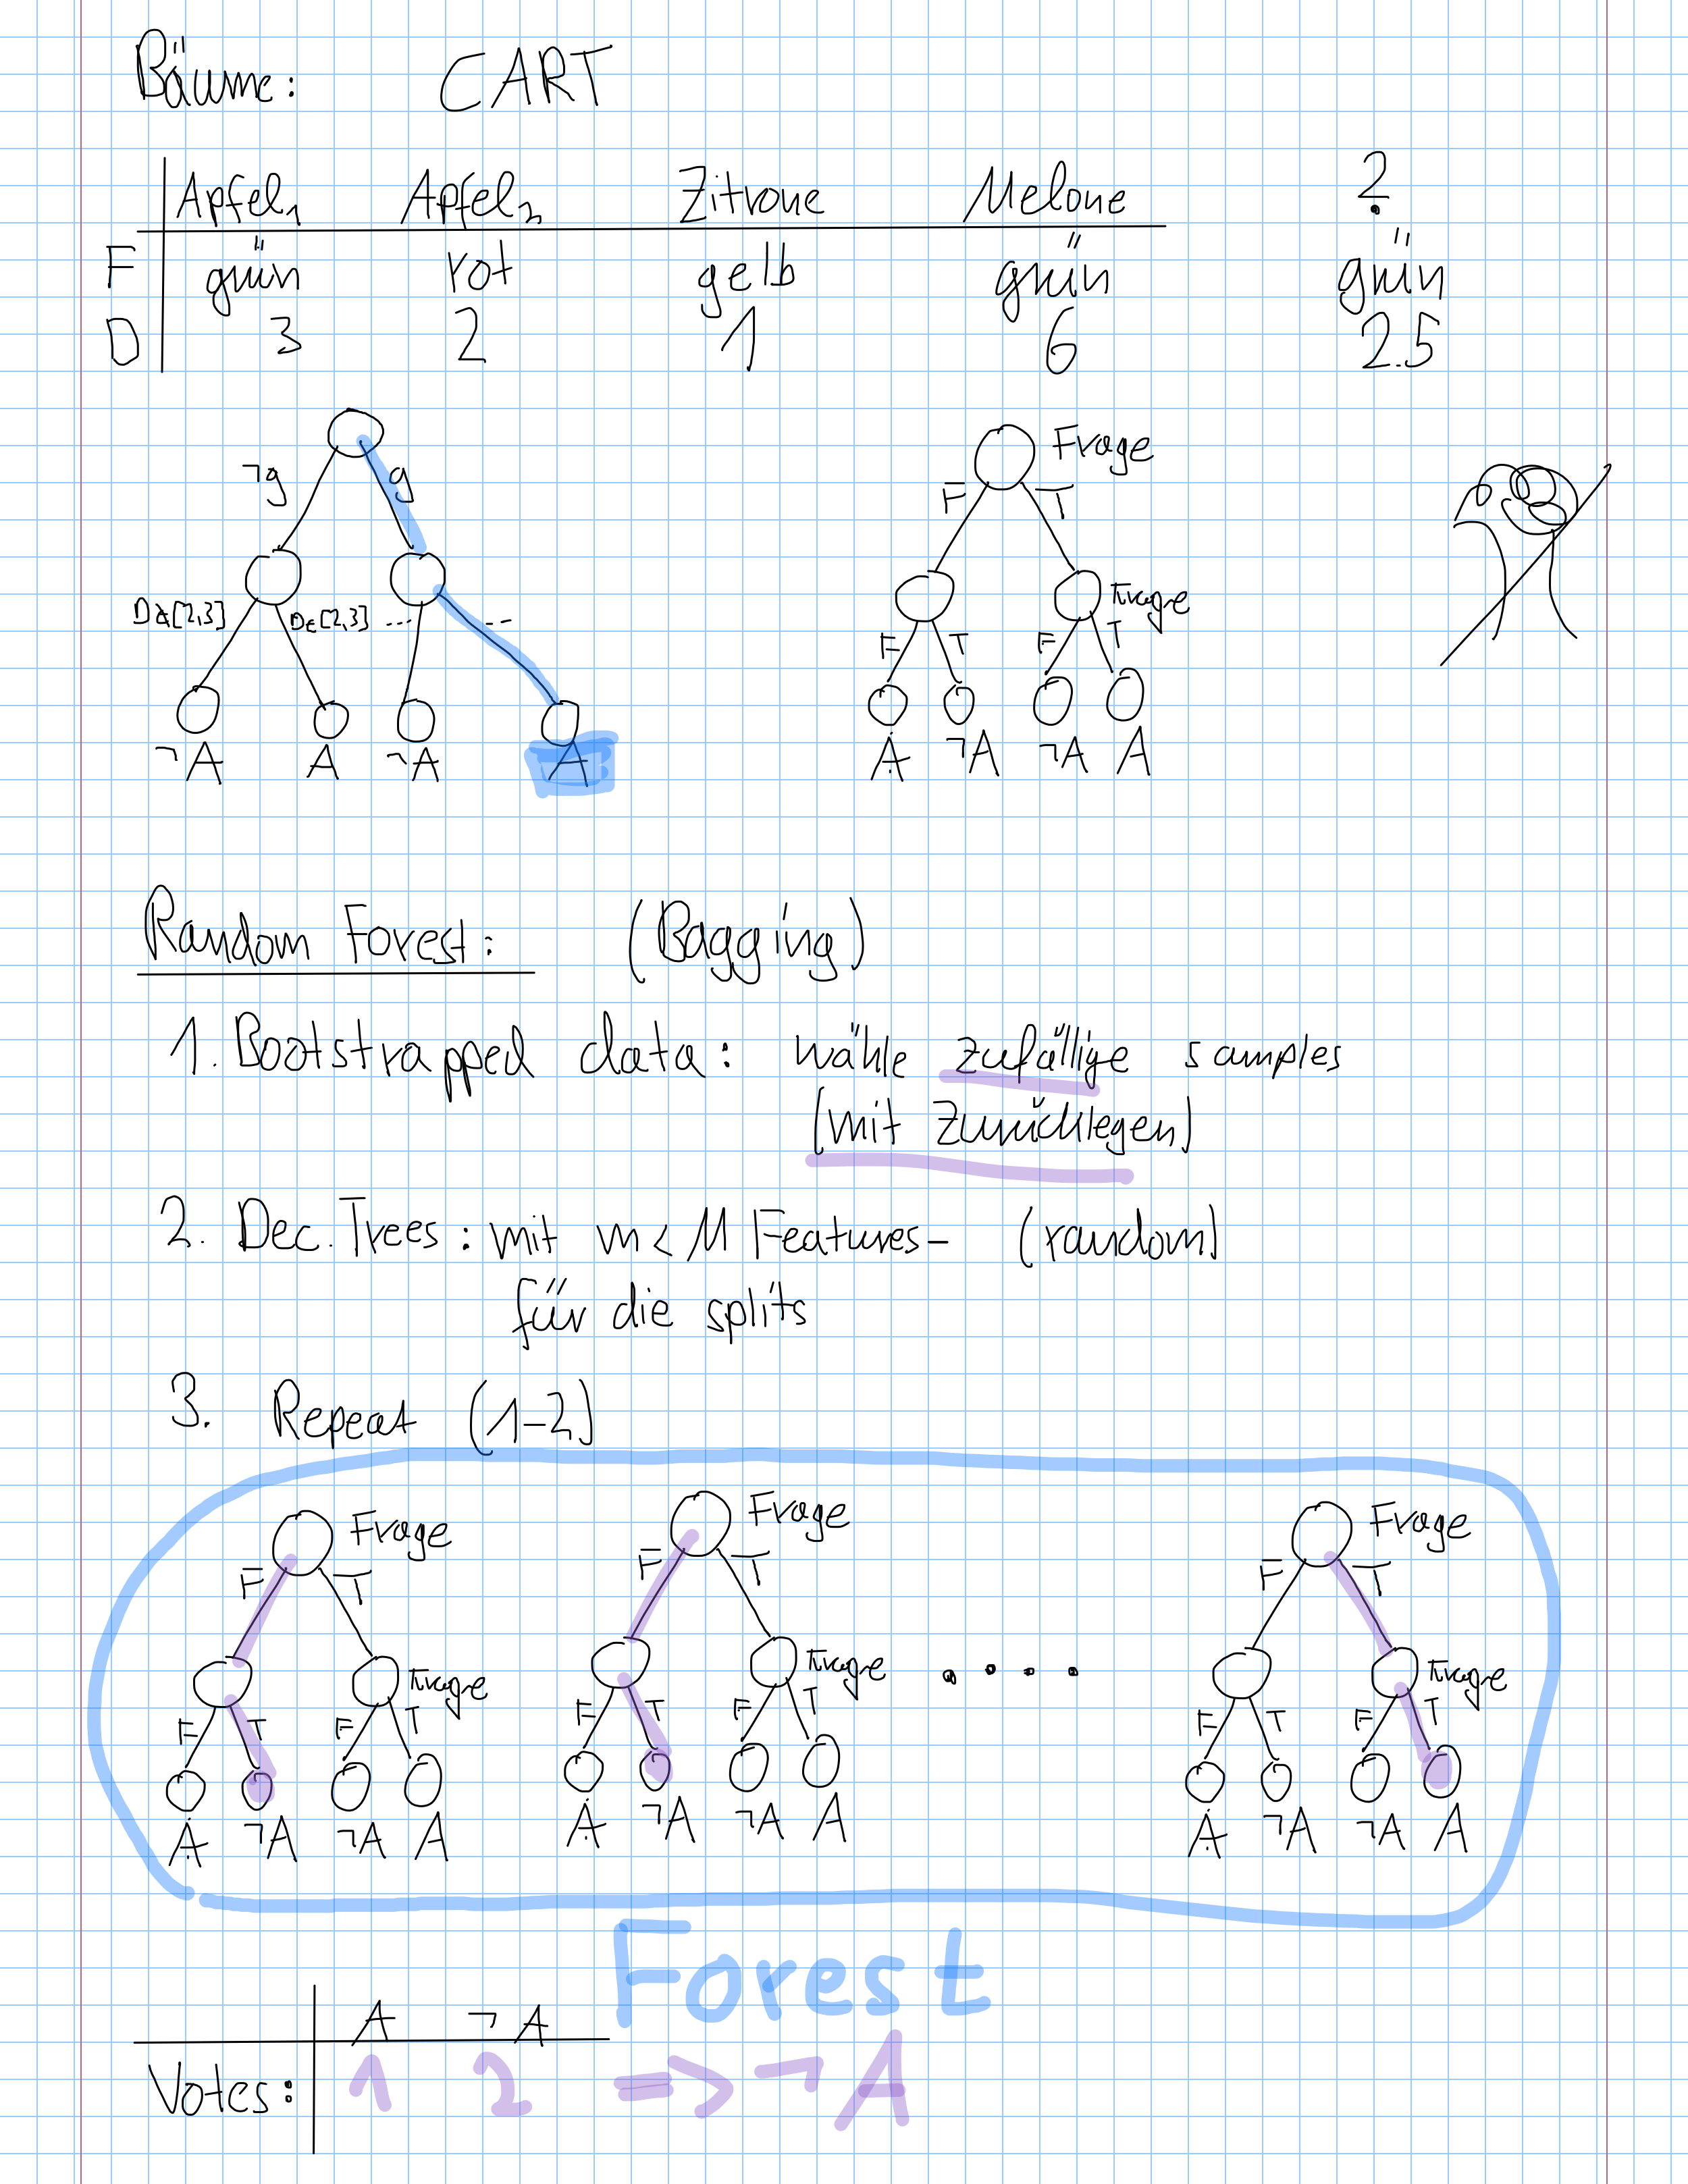 Bäume: CART
Apfel₁ Apfel₂ Zitrone Melone ?
F grün rot gelb grün grün
D 3 2 1 6 2.5
Frage
¬g g F T
D∉[2,3] D∈[2,3] ... ... Frage
F T F T
¬A A ¬A A A ¬A ¬A A
Random Forest: (Bagging)
1. Bootstrapped data: wähle zufällige samples
(mit Zurücklegen)
2. Dec. Trees: mit m < M Features- (random)
für die splits
3. Repeat (1-2)
Frage Frage Frage
F T F T F T
Frage Frage .... Frage
F T F T F T F T F T F T
A ¬A ¬A A A ¬A ¬A A A ¬A ¬A A
Forest
A ¬A
Votes: 1 2 => ¬A